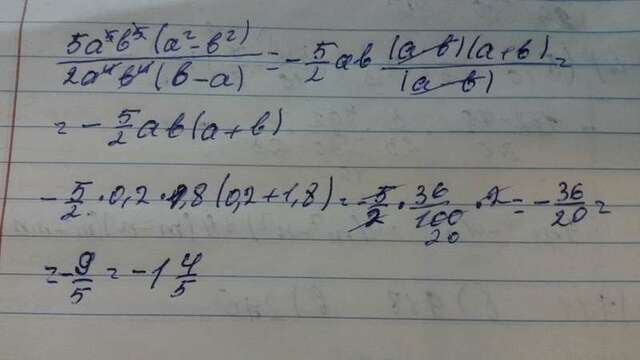 5a⁵b⁵(a²-b²)/2a⁴b⁴(b-a) = -5/2 ab (a-b)(a+b)/(a-b) =
= -5/2 ab(a+b)
-5/2 · 0,2 · 1,8(0,2+1,8) = -5/2 · 36/100 · 2 = -36/20 =
20
= -9/5 = -1 4/5